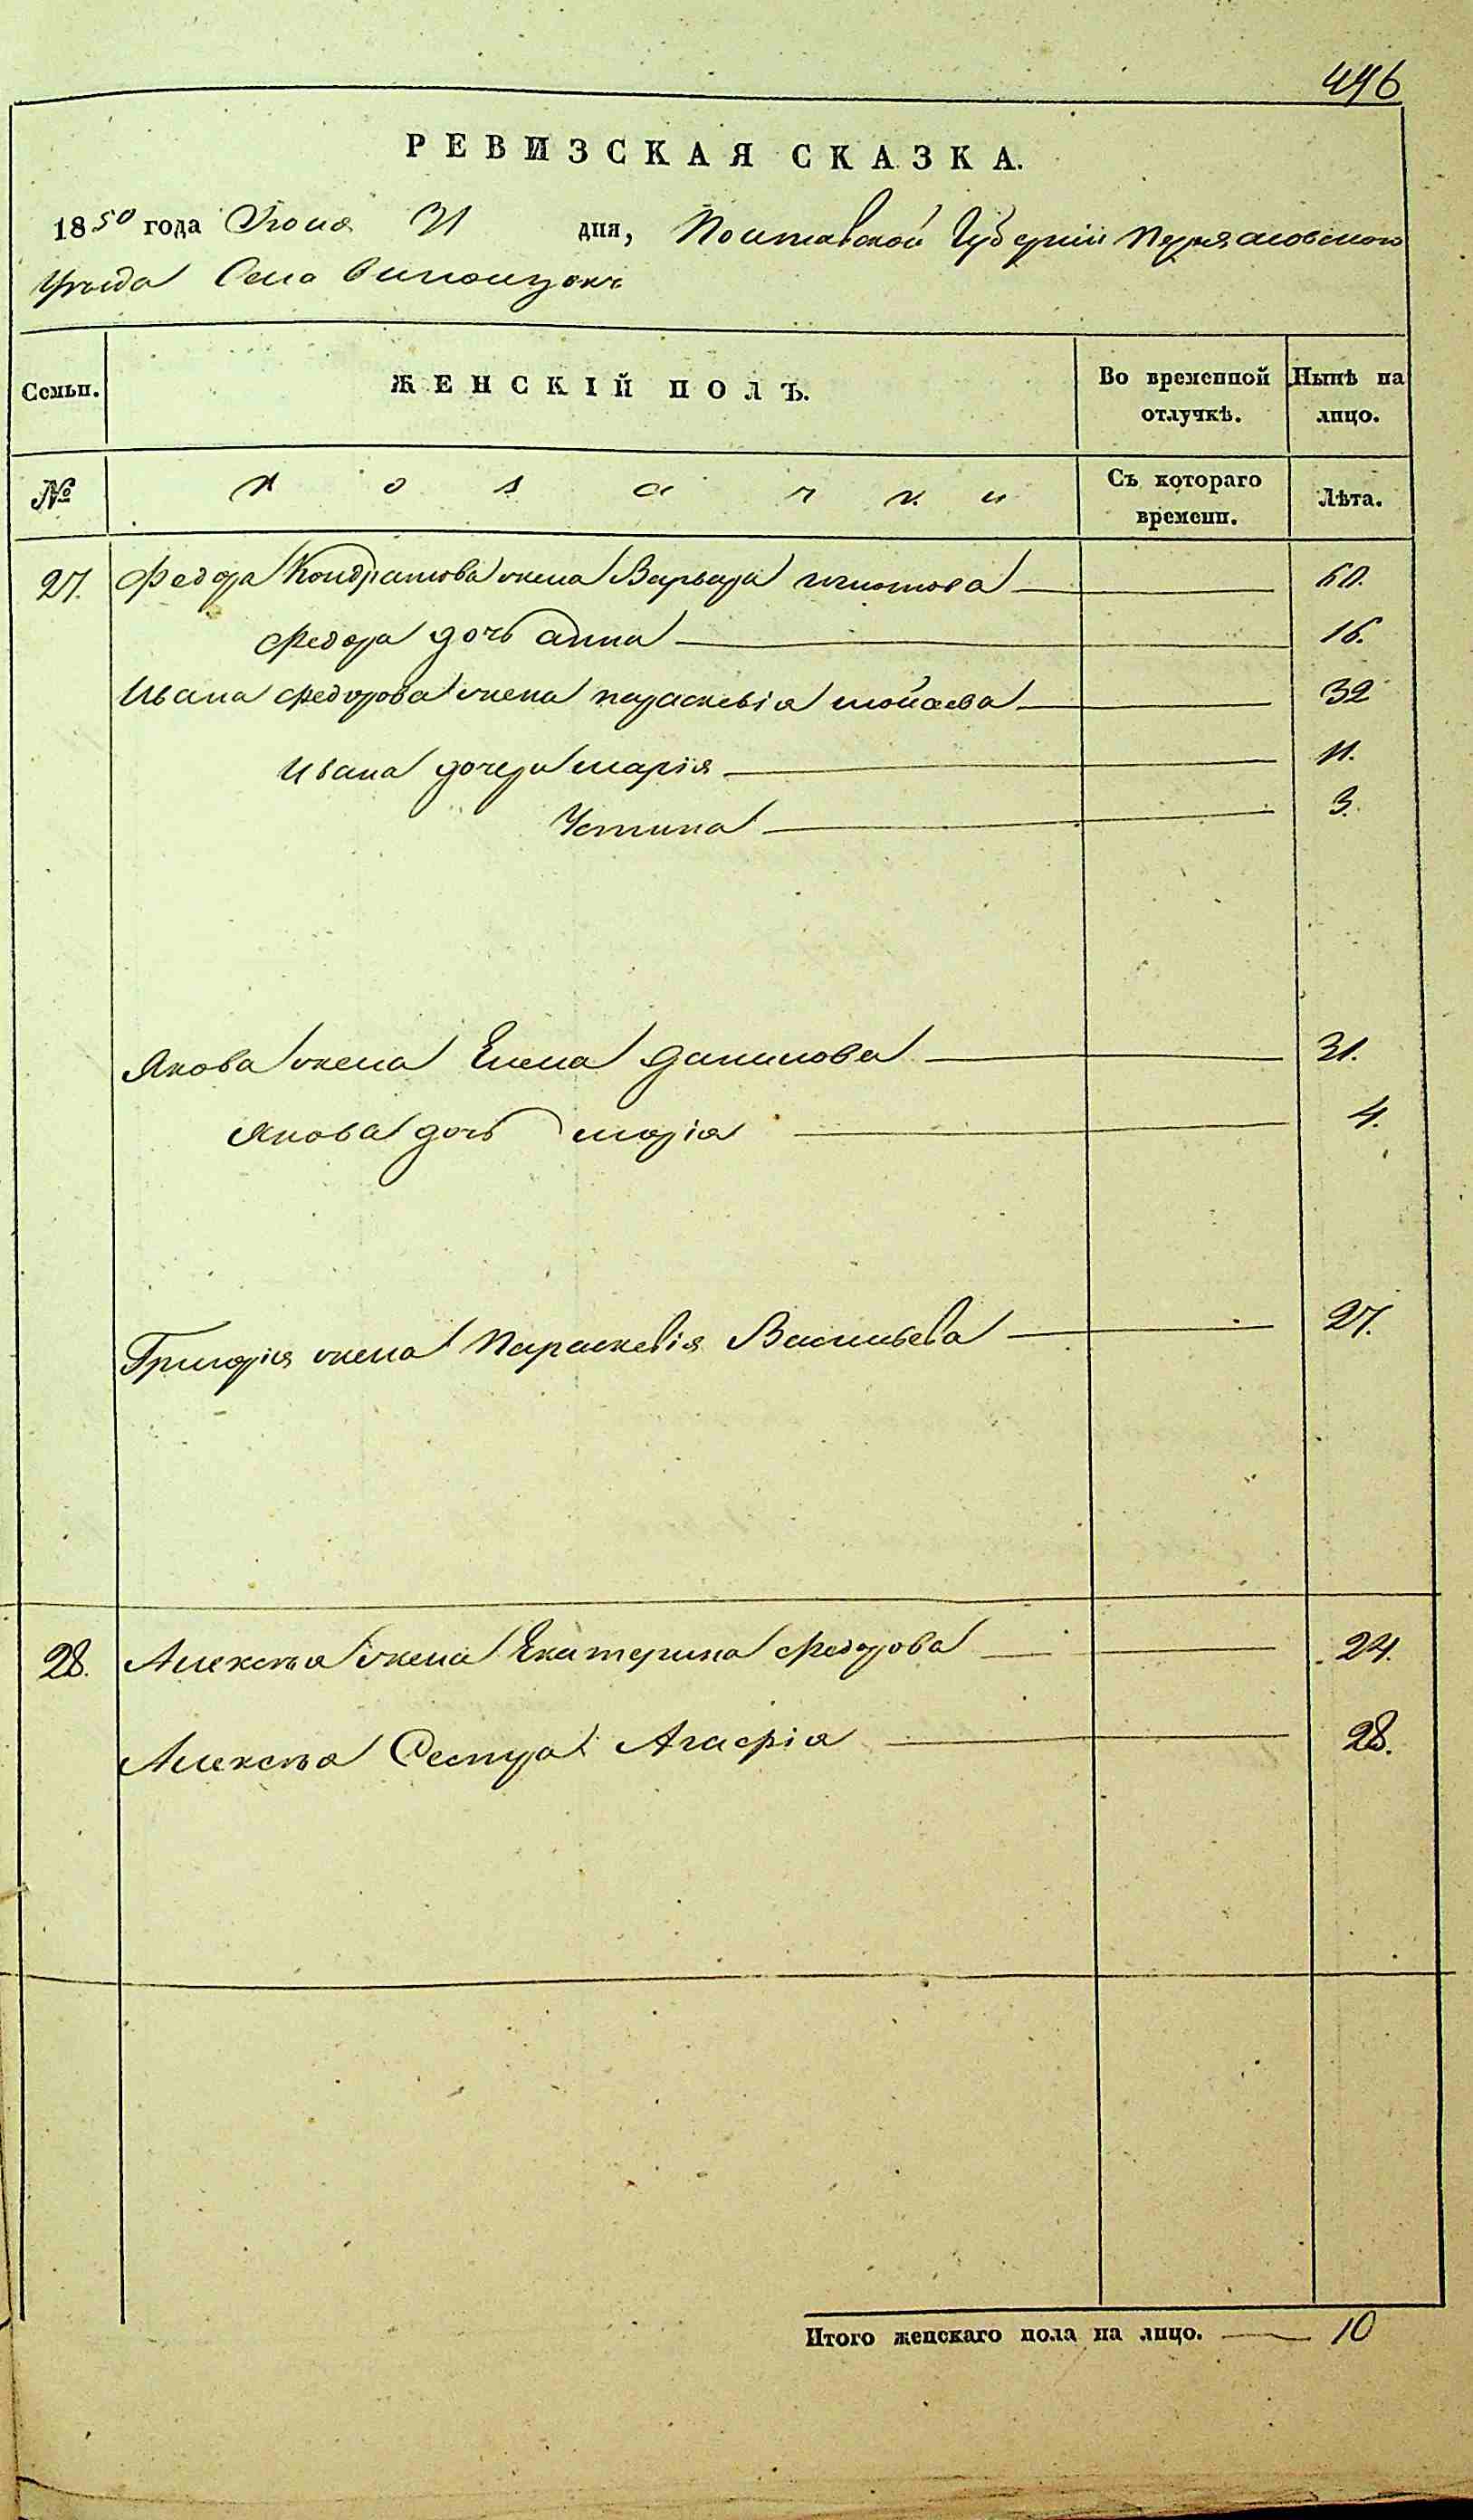 496
РЕВИЗСКАЯ СКАЗКА.
1850 года Июня дня, Полтавской Губернии Переясловского
Уезда Село
Семьи. ЖЕНСКІЙ ПОЛЪ. Во временной отлучкѣ. Нынѣ на лицо.
№ Козачки Съ котораго времени. Лѣта.
27. Федора Кондратова жена Варвара 60.
Федора дочь анна 16.
Ивана Федорова жена параскевіа мойсева 32
Ивана дочери марія 11.
Устина 3.
Якова жена Елена данилова 31.
Якова дочь марія 4.
Григорія жена Параскевія Васильева 27.
28. Алексѣя жена Екатерина Федорова 24.
Алексѣя Сестра Агафія 28.
Итого женскаго пола на лицо. 10